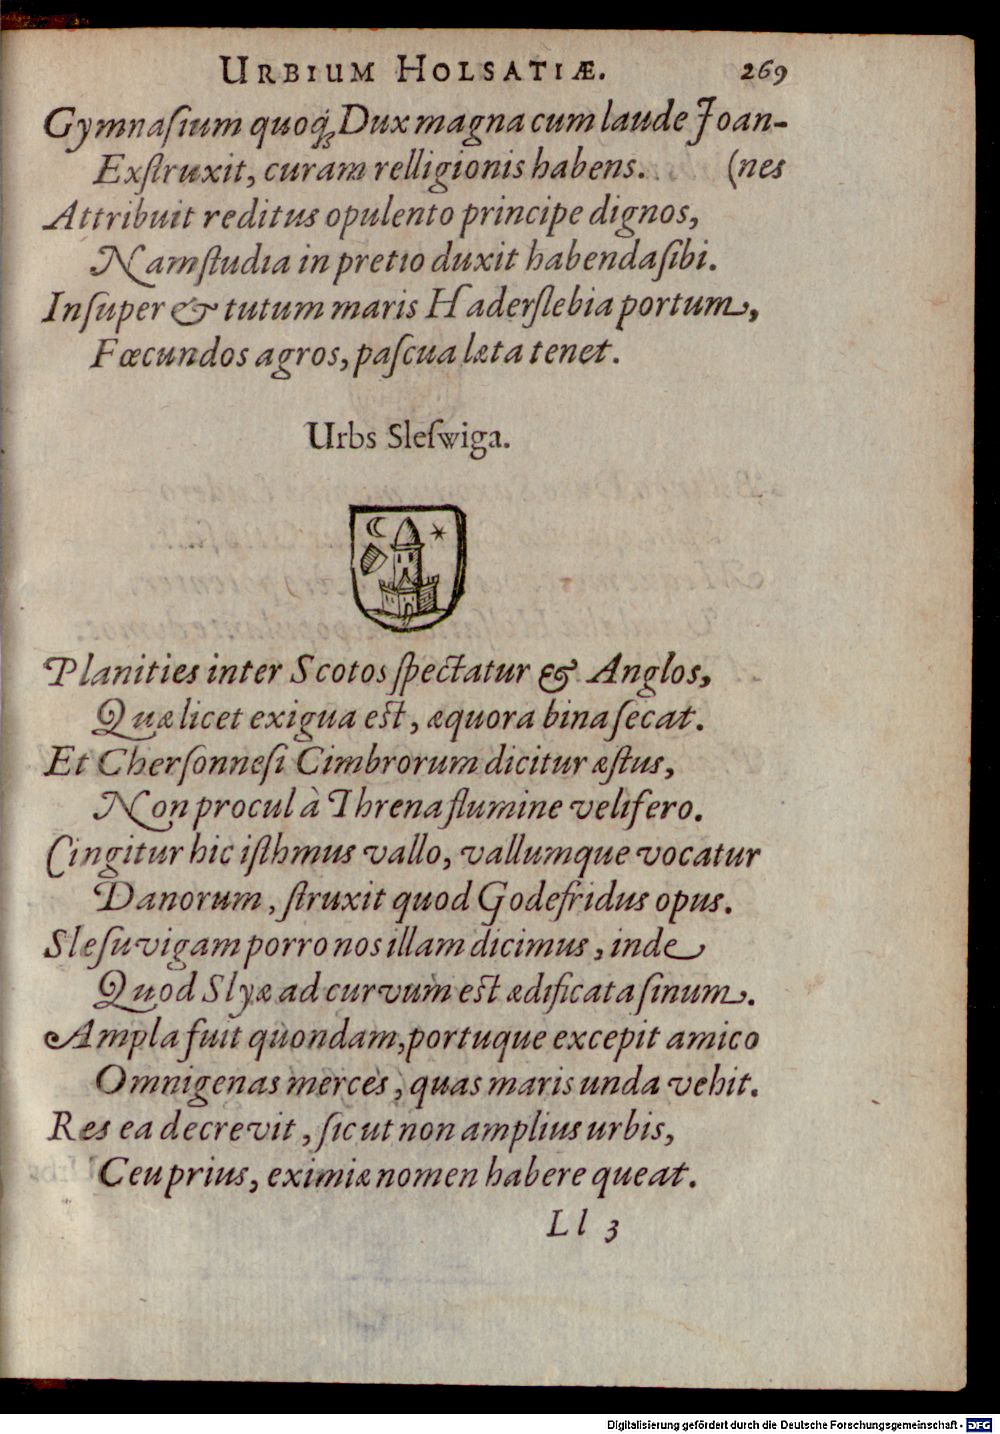 URBIUM HOLSATIÆ. 269
Gymnaſium quoq́; Dux magna cum laude Joan-
Exſtruxit, curam relligionis habens. (nes
Attribuit reditus opulento principe dignos,
Nam ſtudia in pretio duxit habenda ſibi.
Inſuper & tutum maris Haderſlebia portum,
Fœcundos agros, paſcua læta tenet.
Urbs Sleſwiga.
Planities inter Scotos ſpectatur & Anglos,
Quæ licet exigua est, æquora bina ſecat.
Et Cherſonneſi Cimbrorum dicitur æſtus,
Non procul à Threna flumine velifero.
Cingitur hic iſthmus vallo, vallumque vocatur
Danorum, ſtruxit quod Godefridus opus.
Sleſuvigam porro nos illam dicimus, inde
Quod Slyæ ad curvum est ædificata ſinum.
Ampla fuit quondam, portuque excepit amico
Omnigenas merces, quas maris unda vehit.
Res ea decrevit, ſic ut non amplius urbis,
Ceu prius, eximiæ nomen habere queat.
Ll 3
Digitalisierung gefördert durch die Deutsche Forschungsgemeinschaft - DFG